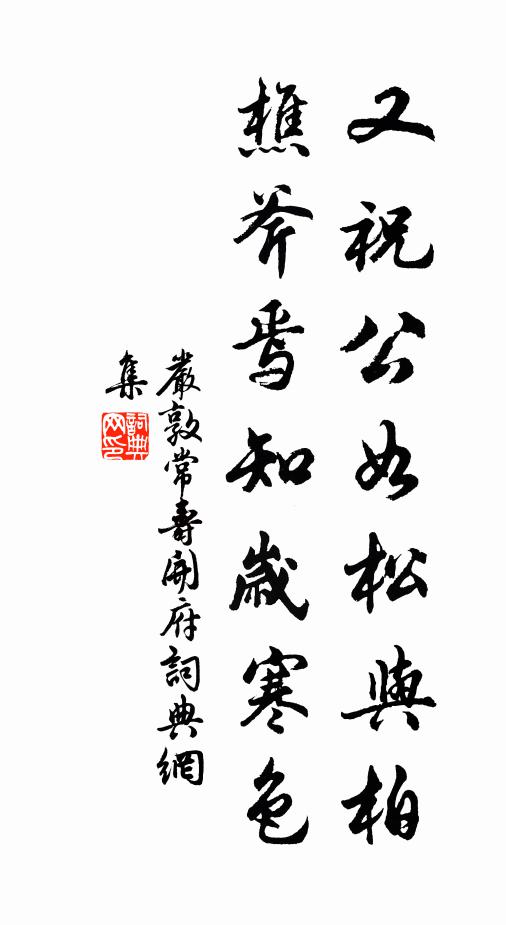 又祝公如松與柏
樵斧焉知歲寒色
嚴敦常壽開府詞典網
集
詞典
网印